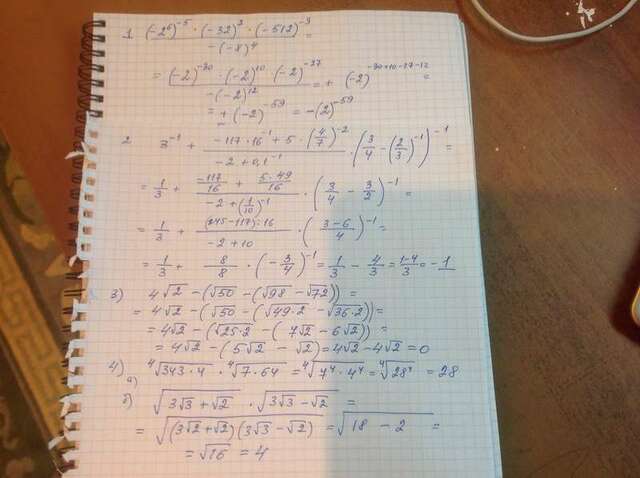 1. ((-2⁶)⁻⁵ · (-32)² · (-512)⁻³) / (-(-8)⁴) =
= ((-2)⁻³⁰ · (-2)¹⁰ · (-2)⁻²⁷) / (-(-2)¹²) = + (-2)⁻³⁰⁺¹⁰⁻²⁷⁻¹² =
= + (-2)⁻⁵⁹ = -(2)⁻⁵⁹
2 3⁻¹ + (-117 · 16⁻¹ + 5 · (4/7)⁻²) / (-2 + 0,1⁻¹) · (3/4 - (2/3)⁻¹)⁻¹ =
= 1/3 + (-117/16 + 5·49/16) / (-2 + (1/10)⁻¹) · (3/4 - 3/2)⁻¹ =
= 1/3 + ((245-117):16) / (-2+10) · ((3-6)/4)⁻¹ =
= 1/3 + 8/8 · (-3/4)⁻¹ = 1/3 - 4/3 = (1-4)/3 = -1
3) 4√2 - (√50 - (√98 - √72)) =
= 4√2 - (√50 - (√49·2 - √36·2)) =
= 4√2 - (√25·2 - (7√2 - 6√2)) =
= 4√2 - (5√2 - √2) = 4√2 - 4√2 = 0
4) а) ⁴√343·4 · ⁴√7·64 = ⁴√7⁴·4⁴ = ⁴√28⁴ = 28
б) √3√3+√2 · √3√3-√2 =
= √(3√2+√2)(3√3-√2) = √18 - 2 =
= √16 = 4